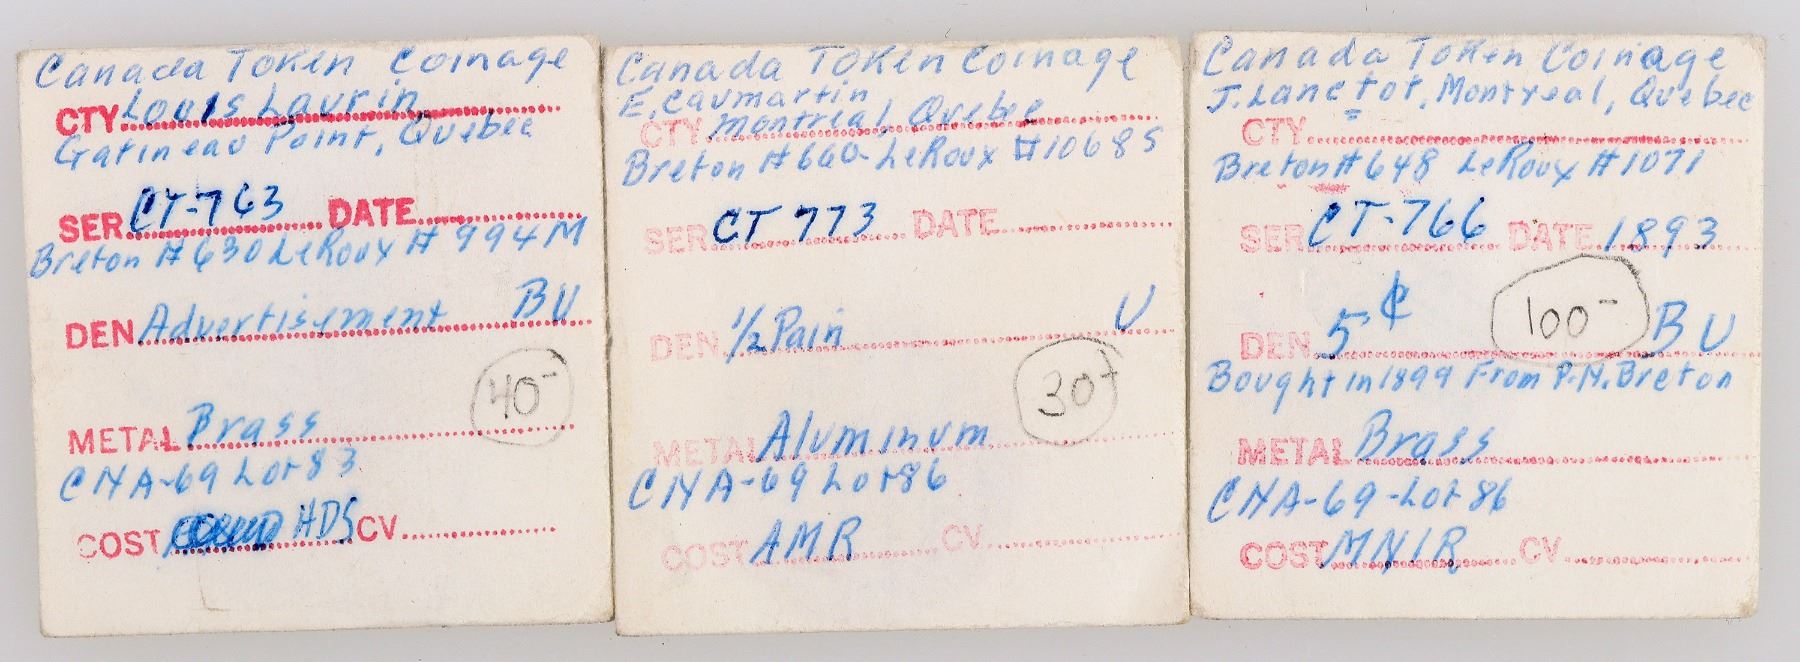 Canada Token Coinage
CTY Louis Laurin
Gatineau Point, Quebec
SER CT-763 DATE
Breton # 630 LeRoux # 994M
DEN Advertisement BU
40-
METAL Brass
CNA-69 Lot 83
COST HDS CV
Canada Token Coinage
E. Caumartin
CTY Montreal Quebec
Breton #660- LeRoux #1068S
SER CT 773 DATE
DEN 1/2 Pain U
30-
METAL Aluminum
CNA-69 Lot 86
COST AMR CV
Canada Token Coinage
J. Lanctot, Montreal, Quebec
CTY
Breton # 648 LeRoux # 1071
SER CT-766 DATE 1893
DEN 5¢ 100- BU
Bought in 1899 From P.N. Breton
METAL Brass
CNA-69-Lot 86
COST MNIR CV